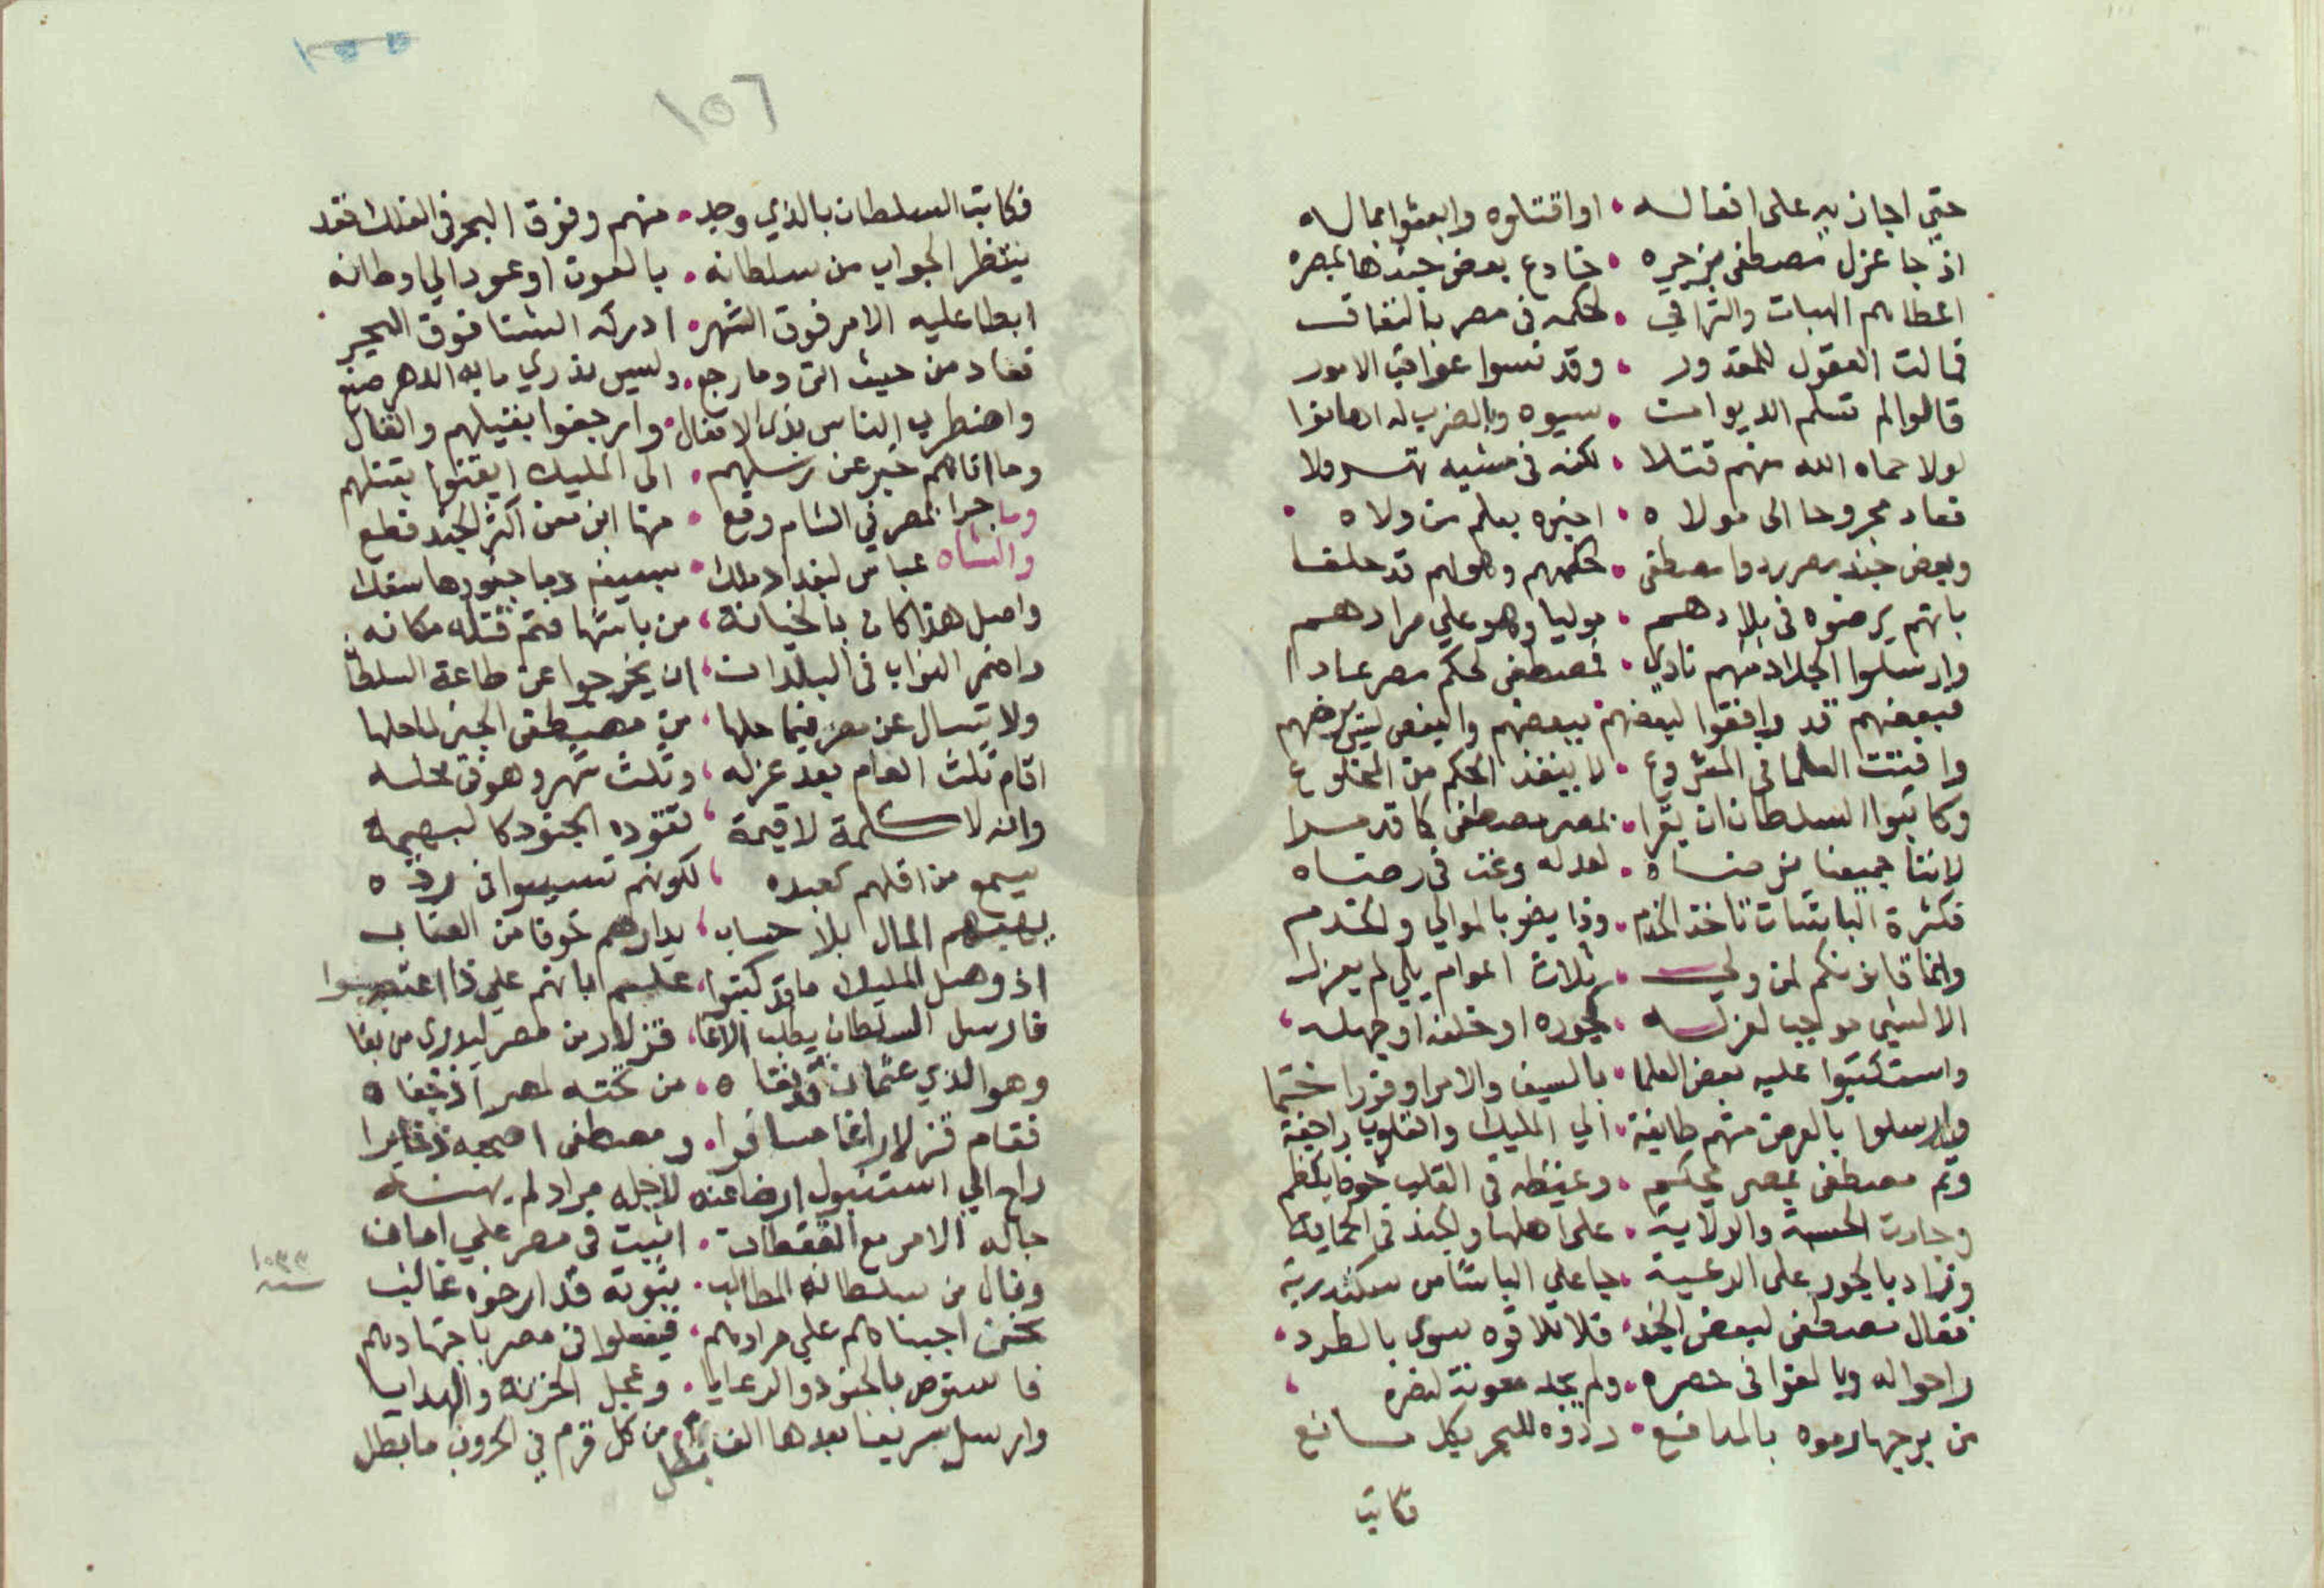 حتي اجازيه على افعاله • او اقتلوه وابعثوا بماله
اذ جا عزل مصطفى بزجره • خادع بعض جندها بمصره
اعطاهم الهبات والتراقي • لحكمه فى مصر بالنفاق
فمالت العقول للمقدور • وقد نسوا عواقب الامور
قالوا لم تسلم الديوان • سبوه وبالضرب له اهانوا
لولا حماه الله منهم قتلا • لكنه فى مشيه تهرولا
فعاد مجروحا الى مولاه • اخبره بعلم من ولاه
وبعض جند مصر ردوا مصطفى • لحكمهم وهو لهم قد حلفا
بانهم يرضوه فى بلادهم • مواليا وهو علي مرادهم
وارسلوا الجلاد منهم نادي • مصطفى لحكم مصر عادا
فبعضهم قد وافقوا لبعضهم • ببعضهم والبعض ليس يرضهم
وافتت العلما فى المشروع • لا ينفذ الحكم من المخلوع
وكاتبوا السلطان ان يقرا • بمصر مصطفى كما قد مرا
لاننا جميعنا نرضاه • لعدله ونحن فى رضاه
فكثرة الباشات تاخذ الخدم • وذا يضر بالموالي والخدم
وانما قانونكم لمن ولي • ثلاث اعوام يلي لم يعزل
الا لشي موجب لعزله • لجوره او خلفه او جهله
واستكتبوا عليه بعض العلما • بالسيف والامرا وفورا ختما
وارسلوا بالعرض منهم طايفة • الي المليك والقلوب راجفة
وتم مصطفى بمصر يحكم • وغيظه فى القلب خوفا يكظم
وجارت الحسبة والولاية • على اهلها والجند فى الحماية
وزاد بالجور على الرعية • جا علي الباشا من سكندرية
فقال مصطفى لبعض الجند • فلا تلاقوه سوى بالطرد
راحوا له وبالغوا فى حصره • ولم يجد معونة لنصره
من برجها رموه بالمدافع • ردوه للبحر بكل مانع
فكاتب
١٥٦
فكاتب السلطان بالذي وجد • منهم وفوق البحر فى الفلك قعد
ينتظر الجواب من سلطانه • بالعون او عود الي اوطانه
ابطا عليه الامر فوق الشهر • ادركه الشتا فوق البحر
فعاد من حيث اتى وما رجع • وليس ندري ما به الدهر صنع
واضطرب الناس بذى الافعال • وارجفوا بفتيلهم والقال
وما اتاهم خبر عن رسلهم • الى المليك ايقنوا بقتلهم
وما جرا بمصر في الشام وقع • منها ابن معن اكثر الجند قطع
والشاه عباس لبغداد ملك • بسيفه دما جنودها سفك
واصل هذا كان بالخيانة • من باشها فتم قتله مكانه
واضمر النواب فى البلدان • ان يخرجوا عن طاعة السلطان
ولا تسال عن مصر فيما حلها • من مصطفى الجبر لما حلها
اقام ثلث العام بعد عزله • وثلث شهر وهو فى محله
وانه لا كلمة لا قيمة • تقوده الجنود كالبهيمة
يسمع من اقلهم كعبده • لكونهم تسببوا فى رده
يهبهم المال بلا حساب • يدارهم خوفا من العتاب
اذ وصل المليك ما قد كتبوا • علم بانهم علي ذا اعتصبوا
فارسل السلطان يطلب الاغا • قزلار من مصر ليدرى من بغا
وهو الذي عثمان قد نفاه • من تخته لمصر اذ جفاه
فقام قزلار اغا مسافرا • ومصطفى اصحبه ذخايرا
راح الي استنبول ارضا عنه • لاجله مراد لم يهنه
جا له الامر مع القفطان • اثبت فى مصر علي امان
ونال من سلطانه المطالب • بثوبة قد ارخوه غالب
١٠٣٣
سنه
نحن اجبناهم علي مرادهم • فيفعلوا فى مصر باجتهادهم
فاستوص بالجنود والرعايا • وعجل الخزنة والهدايا
وارسل سريعا بعدها الفا بطل • من كل قرم في الحروب ما بطل